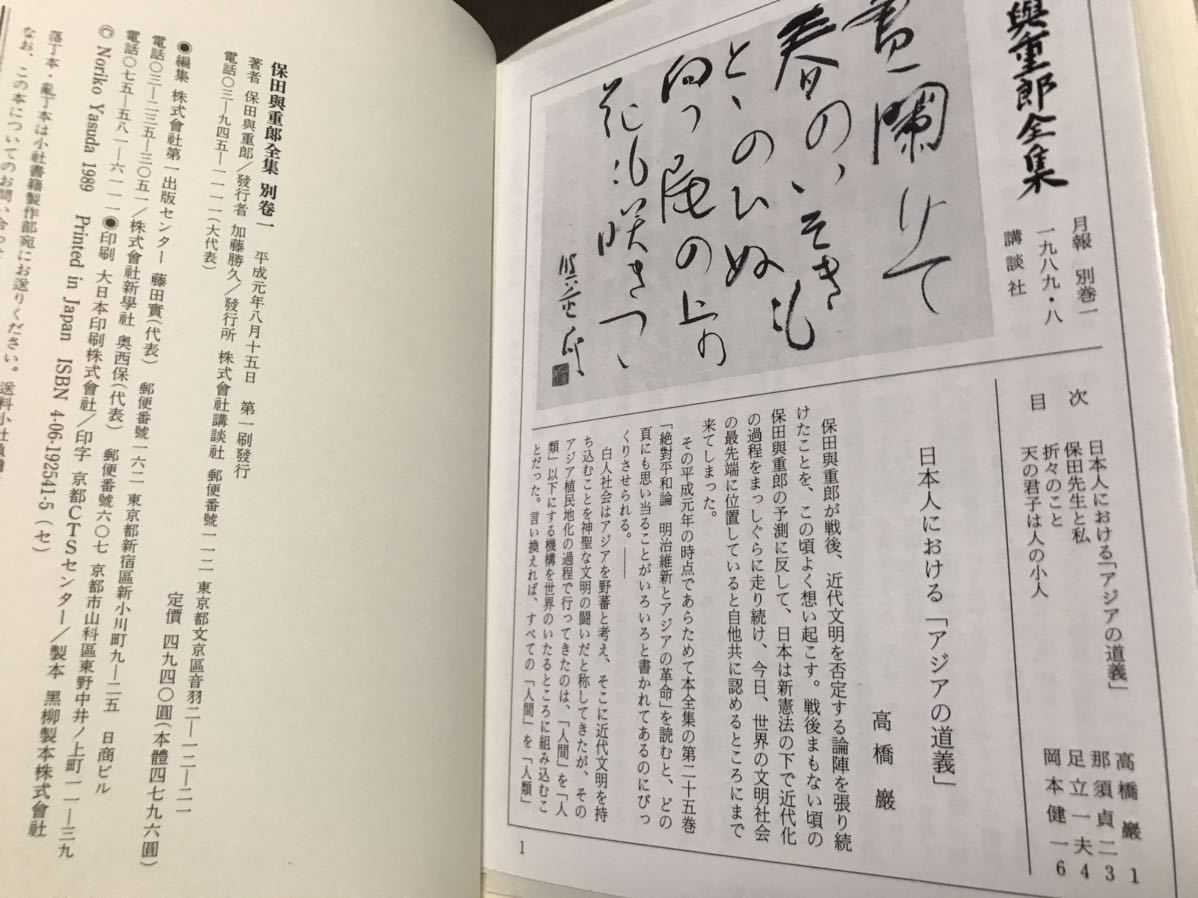 與重郎全集
月報 別巻一
一九八九・八
講談社
春のいそきも
とゝのひぬ
向つ尾の上の
花も咲きつゝ
目次
日本人における「アジアの道義」 高橋巖 1
保田先生と私 那須貞二 3
折々のこと 足立一夫 4
天の君子は人の小人 岡本健一 6
日本人における「アジアの道義」
高橋巖
保田與重郎が戦後、近代文明を否定する論陣を張り続
けたことを、この頃よく想い起こす。戦後まもない頃の
保田與重郎の予測に反して、日本は新憲法の下で近代化
の過程をまっしぐらに走り続け、今日、世界の文明社会
の最先端に位置していると自他共に認めるところにまで
来てしまった。
その平成元年の時点であらためて本全集の第二十五巻
「絶對平和論 明治維新とアジアの革命」を読むと、どの
頁にも思い当ることがいろいろと書かれてあるのにびっ
くりさせられる。――
白人社会はアジアを野蕃と考え、そこに近代文明を持
ち込むことを神聖な文明の闘いだと称してきたが、その
アジア植民地化の過程で行ってきたのは、「人間」を「人
類」以下にする機構を世界のいたるところに組み込むこ
とだった。言い換えれば、すべての「人間」を「人類」
1
保田與重郎全集 別卷一
平成元年八月十五日 第一刷發行
著者 保田與重郎/發行者 加藤勝久/發行所 株式會社講談社 郵便番號一一二 東京都文京區音羽二―一二―二一
電話〇三―九四五―一一一一(大代表)
定價 四九四〇圓(本體四七九六圓)
◉編集 株式會社第一出版センター 藤田實(代表) 郵便番號一六二 東京都新宿區新小川町九―二五 日商ビル
電話〇三―二三五―三〇五一/株式會社新學社 奥西保(代表) 郵便番號六〇七 京都市山科區東野中井ノ上町一一―三九
電話〇七五―五八一―六一一一◉印刷 大日本印刷株式會社/印字 京都CTSセンター/製本 黒柳製本株式會社
© Noriko Yasuda 1989 Printed in Japan ISBN 4-06-192541-5 (セ)
落丁本・亂丁本は小社書籍製作部宛にお送りください。送料小社負擔
なお、この本についてのお問い合わせ